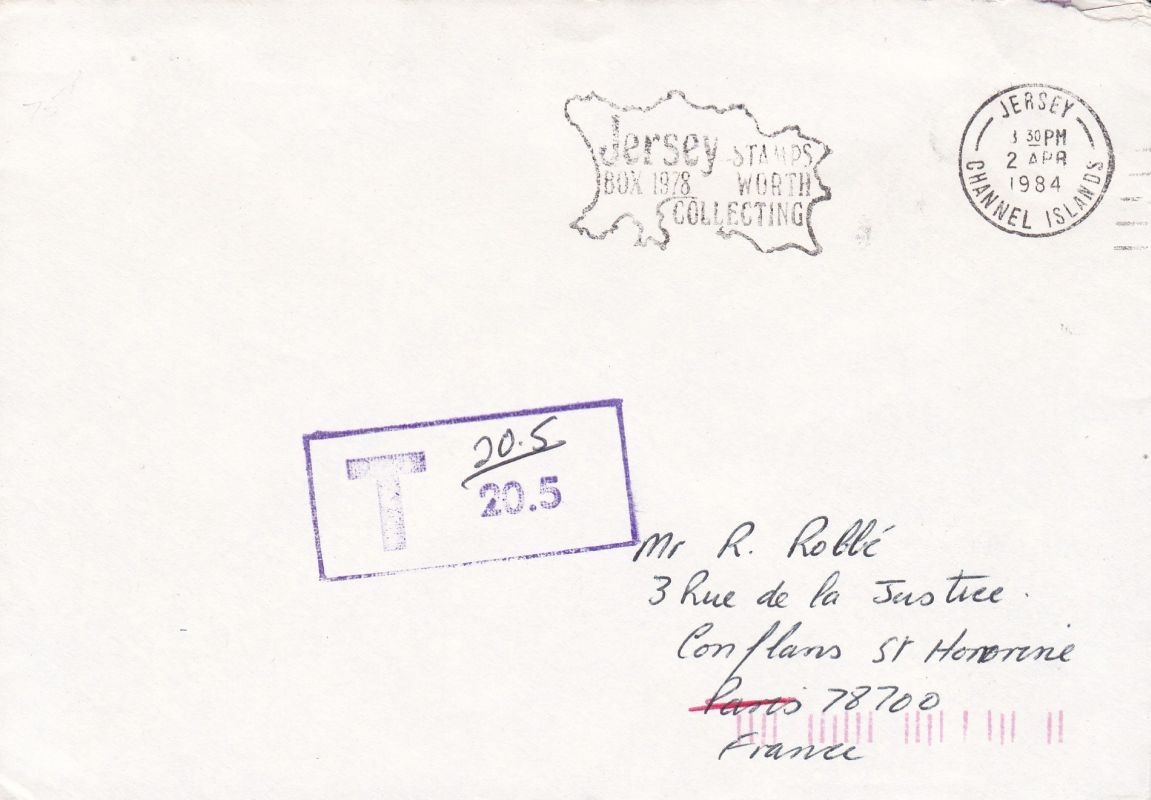 Jersey STAMPS
BOX 1978 WORTH
COLLECTING
JERSEY
3 30 PM
2 APR
1984
CHANNEL ISLANDS
T
20.5
20.5
Mr R. Robbé
3 Rue de la Justice.
Conflans St Honorine
Paris 78700
France